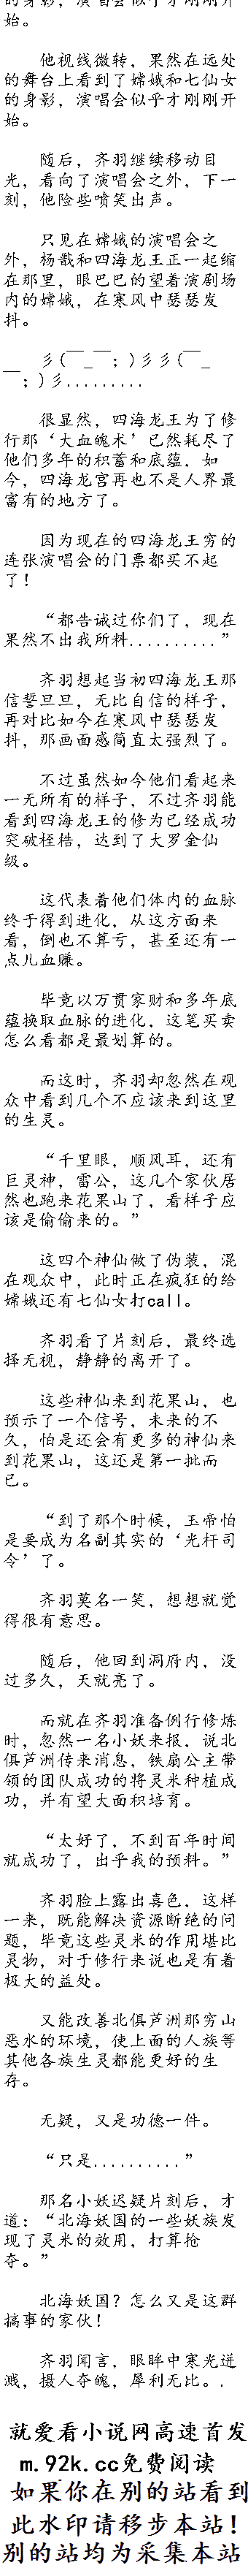 的身影，演唱会似乎才刚刚开
始。
他视线微转，果然在远处
的舞台上看到了嫦娥和七仙女
的身影，演唱会似乎才刚刚开
始。
随后，齐羽继续移动目
光，看向了演唱会之外，下一
刻，他险些喷笑出声。
只见在嫦娥的演唱会之
外，杨戬和四海龙王正一起缩
在那里，眼巴巴的望着演剧场
内的嫦娥，在寒风中瑟瑟发
抖。
彡(￣_￣；)彡彡(￣_
￣；)彡.........
很显然，四海龙王为了修
行那‘大血魄术’已然耗尽了
他们多年的积蓄和底蕴，如
今，四海龙宫再也不是人界最
富有的地方了。
因为现在的四海龙王穷的
连张演唱会的门票都买不起
了！
“都告诫过你们了，现在
果然不出我所料..........”
齐羽想起当初四海龙王那
信誓旦旦，无比自信的样子，
再对比如今在寒风中瑟瑟发
抖，那画面感简直太强烈了。
不过虽然如今他们看起来
一无所有的样子，不过齐羽能
看到四海龙王的修为已经成功
突破桎梏，达到了大罗金仙
级。
这代表着他们体内的血脉
终于得到进化，从这方面来
看，倒也不算亏，甚至还有一
点儿血赚。
毕竟以万贯家财和多年底
蕴换取血脉的进化，这笔买卖
怎么看都是最划算的。
而这时，齐羽却忽然在观
众中看到几个不应该来到这里
的生灵。
“千里眼，顺风耳，还有
巨灵神，雷公，这几个家伙居
然也跑来花果山了，看样子应
该是偷偷来的。”
这四个神仙做了伪装，混
在观众中，此时正在疯狂的给
嫦娥还有七仙女打call。
齐羽看了片刻后，最终选
择无视，静静的离开了。
这些神仙来到花果山，也
预示了一个信号，未来的不
久，怕是还会有更多的神仙来
到花果山，这还是第一批而
已。
“到了那个时候，玉帝怕
是要成为名副其实的‘光杆司
令’了。
齐羽莫名一笑，想想就觉
得很有意思。
随后，他回到洞府内，没
过多久，天就亮了。
而就在齐羽准备例行修炼
时，忽然一名小妖来报，说北
俱芦洲传来消息，铁扇公主带
领的团队成功的将灵米种植成
功，并有望大面积培育。
“太好了，不到百年时间
就成功了，出乎我的预料。”
齐羽脸上露出喜色，这样
一来，既能解决资源断绝的问
题，毕竟这些灵米的作用堪比
灵物，对于修行来说也是有着
极大的益处。
又能改善北俱芦洲那穷山
恶水的环境，使上面的人族等
其他各族生灵都能更好的生
存。
无疑，又是功德一件。
“只是..........”
那名小妖迟疑片刻后，才
道：“北海妖国的一些妖族发
现了灵米的效用，打算抢
夺。”
北海妖国？怎么又是这群
搞事的家伙！
齐羽闻言，眼眸中寒光迸
溅，摄人夺魄，犀利无比。.
就爱看小说网高速首发
m.92k.cc免费阅读
如果你在别的站看到
此水印请移步本站！
别的站均为采集本站